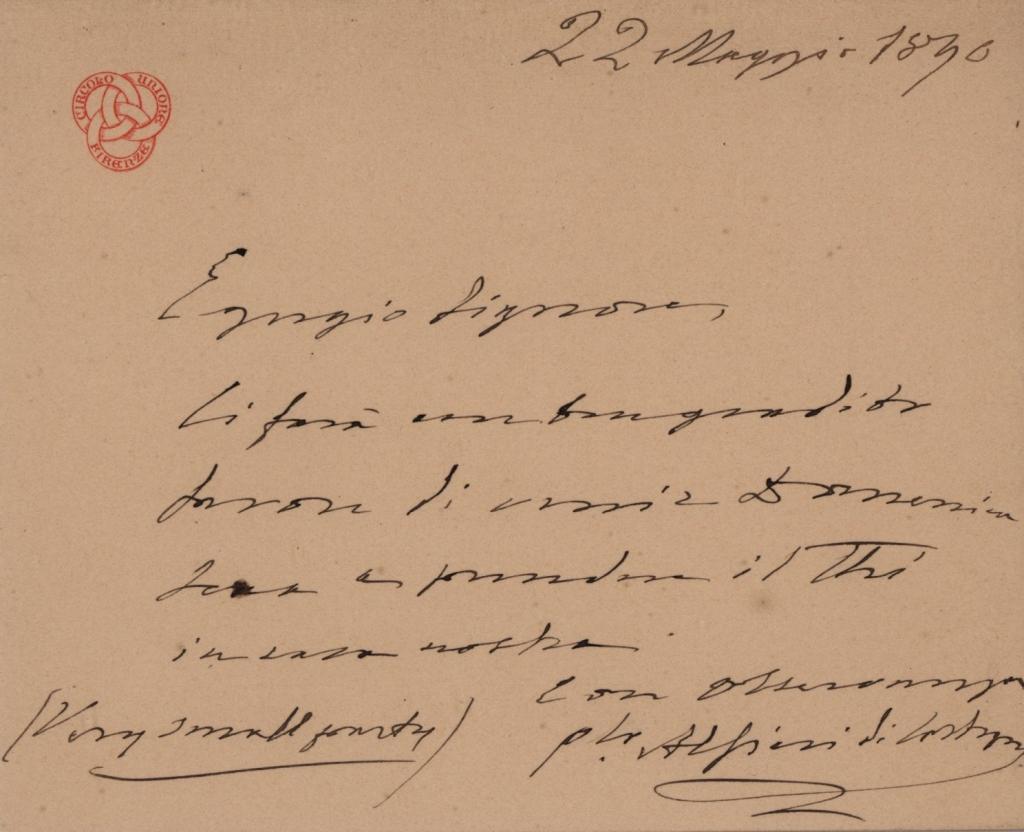 22 Maggio 1890
CIRCOLO UNIONE FIRENZE
Egregio Signore,
Ci farà un ben gradito
favore di venir Domenica
sera a prendere il Thé
in casa nostra.
Con osservanza
(Very small party)
Alfieri di Sostegno